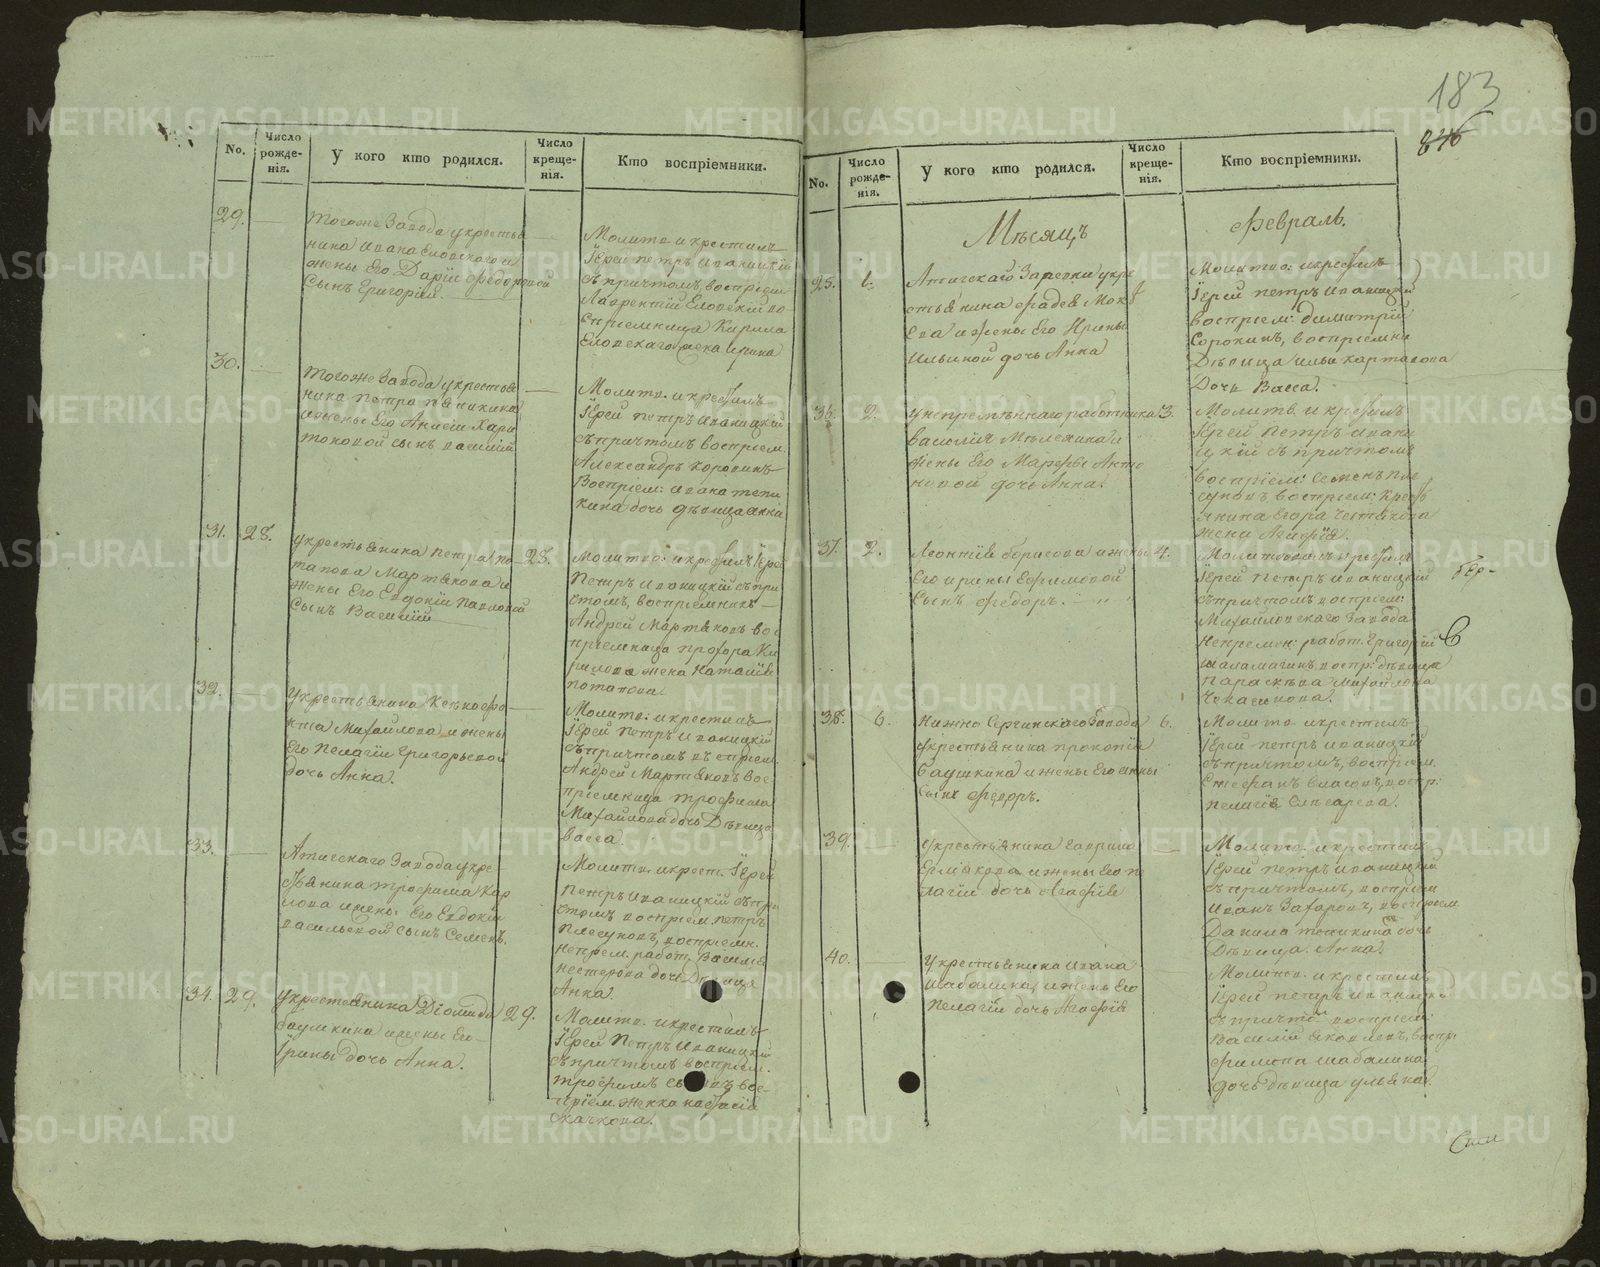 183
846
No.
Число рожде-нія.
У кого кто родился.
Число креще-нія.
Кто воспріемники.
29.
Тогоже Завода укрестья
нина Ивана Еловскаго и
жены Его Даріи Федоровой
Сынъ Григорій.
Молитв. и крестилъ
Іерей Петръ Иваницкій
съ причтомъ, воспріем.
Лаврентій Еловскій во
спріемница Кирила
Еловскаго жена Ирина
30.
Тогоже Завода укрестья
нина Петра
и жены Его Анисіи Хари
тоновой сынъ Василій
Молитв. и крестилъ
Іерей Петръ Иваницкій
съ причтомъ воспріем.
Александръ Коровинъ
Воспріем: Ивана Тепи
кина дочь дѣвица Анна
31.
28.
укрестьянина Петра По
тапова Мартьянова и
жены Его Евдокіи Павловой
Сынъ Василій
28.
Молитво: и крестилъ Іерей
Петръ Иваницкій съ при
чтомъ, воспріемникъ
Андрей Мартьяновъ вос
пріемница Прохора Ки
рилова жена Наталія
Потапова
32.
укрестьянина Ксенофо
нта Михайлова и жены
Его Пелагіи Григорьевой
дочь Анна.
Молитв: и крестилъ
Іерей Петръ Иваницкій
съ причтомъ воспріем.
Андрей Мартьяновъ вос
пріемница Трофима
Михайлова дочь Дѣвица
Васса.
33.
Атигскаго Завода укре
стьянина Трофима Кар
пова и жены Его Евдокіи
Васильевой сынъ Семенъ.
Молитв. и крест. Іерей
Петръ Иваницкій съ при
чтомъ воспріем. Петръ
Плесуновъ, воспріемн.
непрем. работ. Василья
Нестерова дочь Дѣвица
Анна.
34.
29.
Укрестьянина Діомида
Баушкина и жены Его
Ірины дочь Анна.
29.
Молитв. и крестилъ
Іерей Петръ Иваницкій
съ причтомъ воспріем.
Трофимъ вос
пріем. женка Настасія
Скачкова.
No.
Число рожде-нія.
У кого кто родился.
Число креще-нія.
Кто воспріемники.
Мѣсяцъ
Февраль.
25.
1.
Атигскаго Завода укре
стьянина Фадея Моке
ева и жены Его Ирины
Ильиной дочь Анна
Молитво: и крестилъ
Іерей Петръ Иваницкій
воспріем: Димитрій
Сорокинъ, воспріемни
Дѣвица Ильи Карташова
Дочь Васса.
36.
2.
У непремѣннаго работника
Василія и
жены Его Марфы Анто
новой дочь Анна.
3.
Молитв. и крестилъ
Іерей Петръ Ивани
цкій съ причтомъ
воспріем: Семенъ Пле
суновъ воспріем: Крест
янина Егора
жена Агафія.
37.
2.
Леонтія Борисова и жены
Его Ирины Ефимовой
Сынъ Федоръ.
4.
Молитвова. и крестил
Іерей Петръ Иваницкій
съ причтомъ воспріем:
Михайловскаго Завода
Непремен: работ. Григорій
Шаламагинъ, воспр: дѣвица
Параскева Михайлова
38.
6.
Нижно Сергинскаго Завода
укрестьянина Прокопія
Баушкина и жены Его Анны
Сынъ Федоръ.
6.
Молитв. и крестилъ
Іерей Петръ Иваницкій
съ причтомъ, воспріем.
Стефанъ Власовъ, воспр:
Пелагія Елисарева.
39.
укрестьянина Гаврила
Ермакова и жены Его Пе
лагіи дочь Агафія
Молитв. и крестилъ
Іерей Петръ Иваницкій
съ причтомъ, воспріем
Иванъ Захаровъ, воспріем
Данила Тепикина дочь
Дѣвица. Анна.
40.
Укрестьянина Ивана
Шабалина, и жены Его
Пелагіи дочь Агафія
Молитв. и крестилъ
Іерей Петръ Иваницкій
съ причто воспріем:
Василій Яковлевъ, воспр:
Филипа Шабалина
дочь дѣвица Ульяна.
METRIKI.GASO-URAL.RU